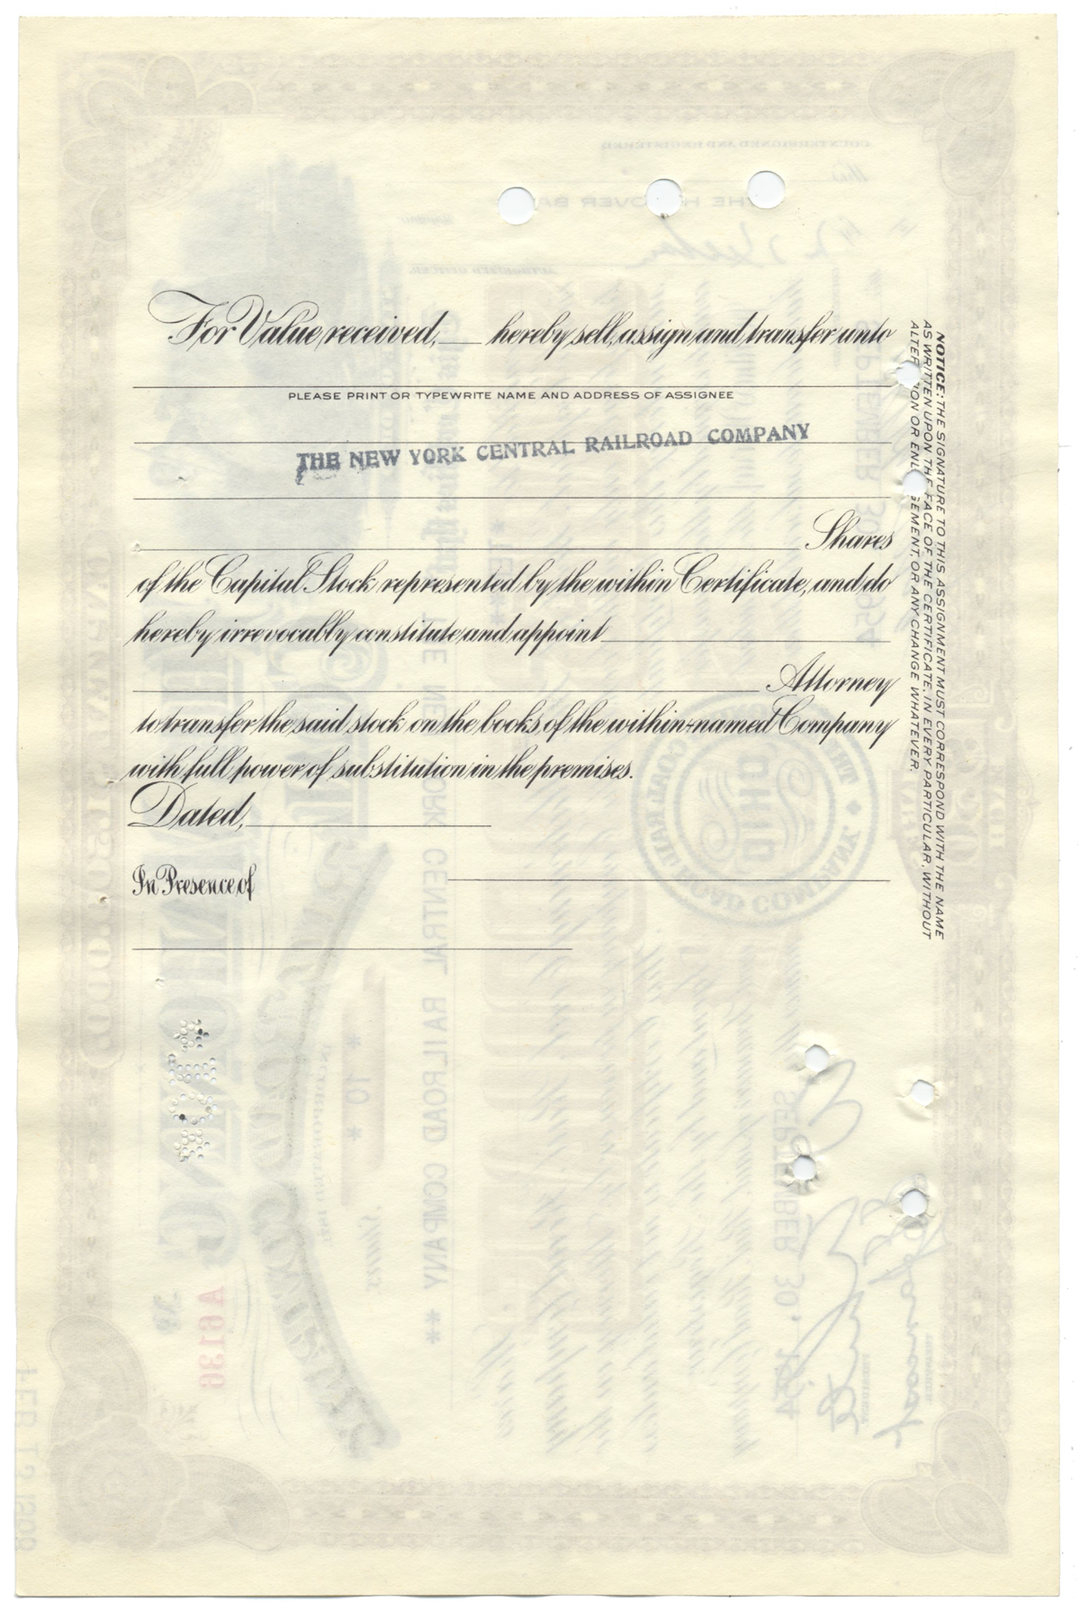 For Value received, ___ hereby sell, assign and transfer unto
PLEASE PRINT OR TYPEWRITE NAME AND ADDRESS OF ASSIGNEE
THE NEW YORK CENTRAL RAILROAD COMPANY
Shares
of the Capital Stock represented by the within Certificate, and do
hereby irrevocably constitute and appoint
Attorney
to transfer the said stock on the books of the within-named Company
with full power of substitution in the premises.
Dated,
In Presence of
NOTICE: THE SIGNATURE TO THIS ASSIGNMENT MUST CORRESPOND WITH THE NAME
AS WRITTEN UPON THE FACE OF THE CERTIFICATE, IN EVERY PARTICULAR, WITHOUT
ALTERATION OR ENLARGEMENT, OR ANY CHANGE WHATEVER.
COUNTERSIGNED AND REGISTERED
THE HANOVER BANK
AUTHORIZED OFFICER.
SEPTEMBER 30, 1954
THE NEW YORK CENTRAL RAILROAD COMPANY **
* 10 *
A6136
SEPTEMBER 30, 1954